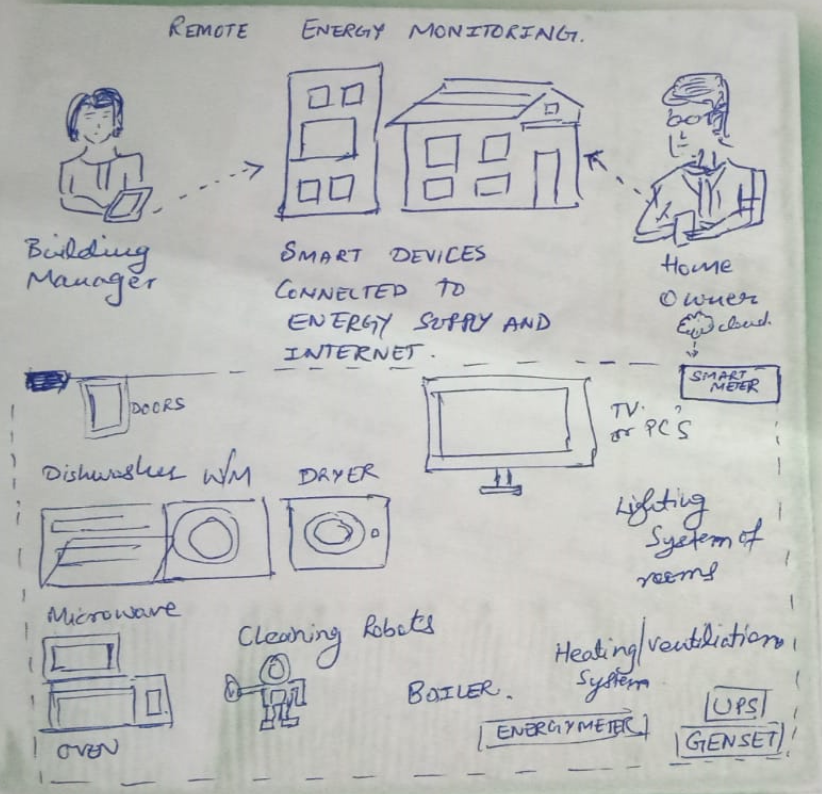 REMOTE ENERGY MONITORING.
Building
Manager
SMART DEVICES
CONNECTED TO
ENERGY SUPPLY AND
INTERNET.
Home
Owner
cloud.
SMART
METER
DOORS
TV.
or PC'S
Dishwasher W/M DRYER
Lighting
System of
rooms
Microwave
Cleaning Robots
Heating/ventiliation
System
BOILER.
ENERGYMETER
UPS
GENSET
OVEN